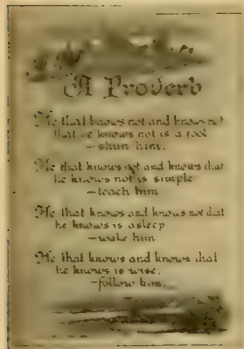 A Proverb
He that knows not and knows not
that he knows not is a fool
—shun him.
He that knows not and knows that
he knows not is simple
—teach him
He that knows and knows not that
he knows is asleep
—wake him
He that knows and knows that
he knows is wise.
—follow him.